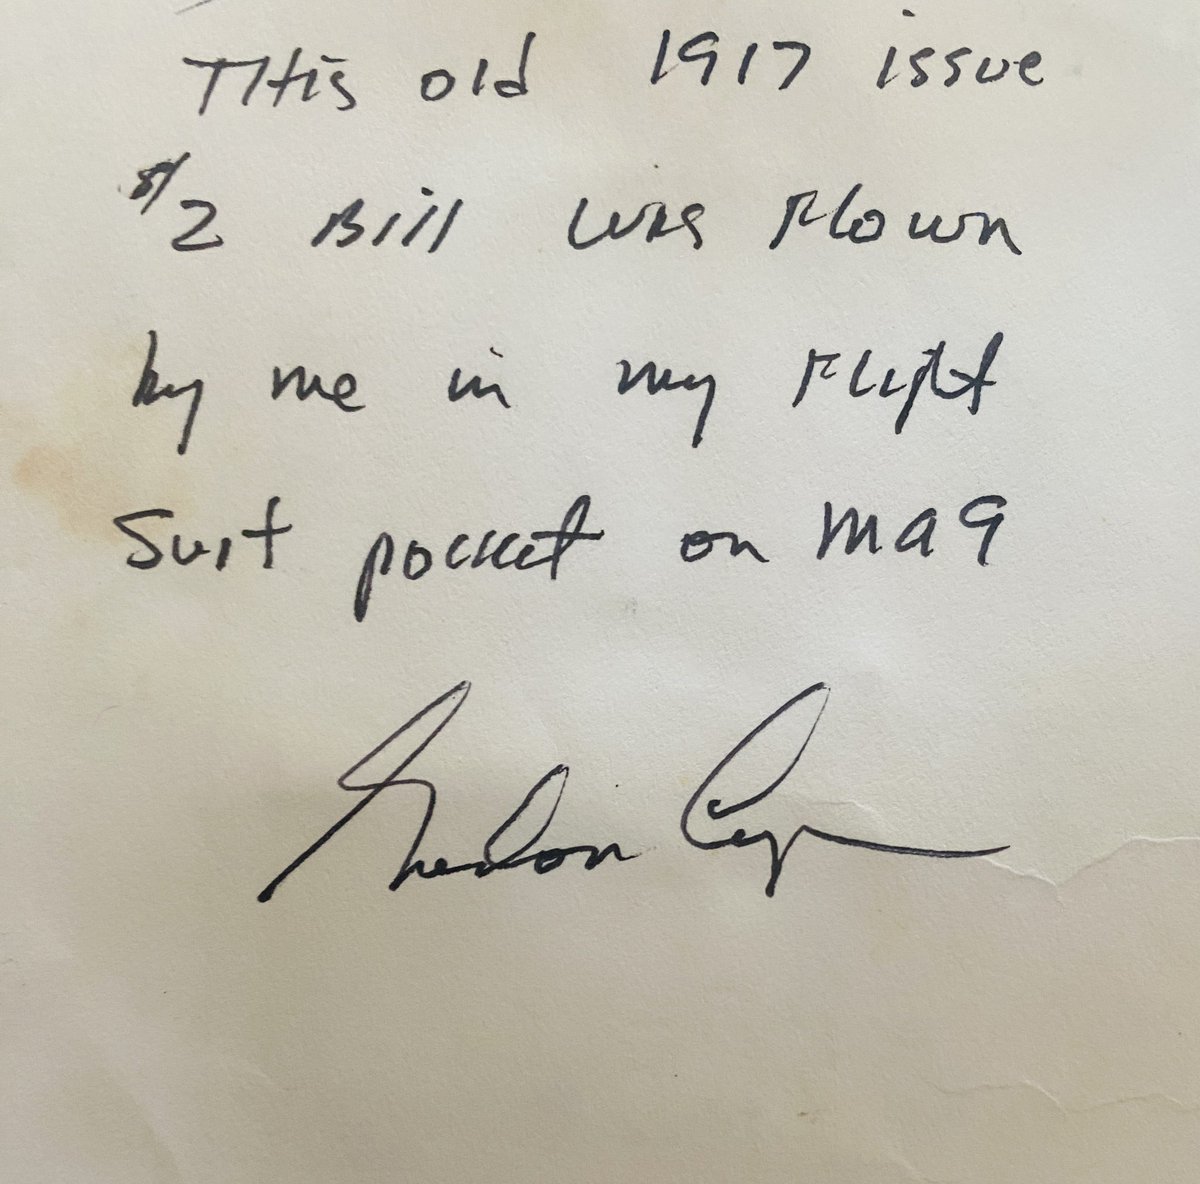 This old 1917 issue
$2 Bill was Flown
by me in my Flight
Suit pocket on MA9
Gordon Cooper